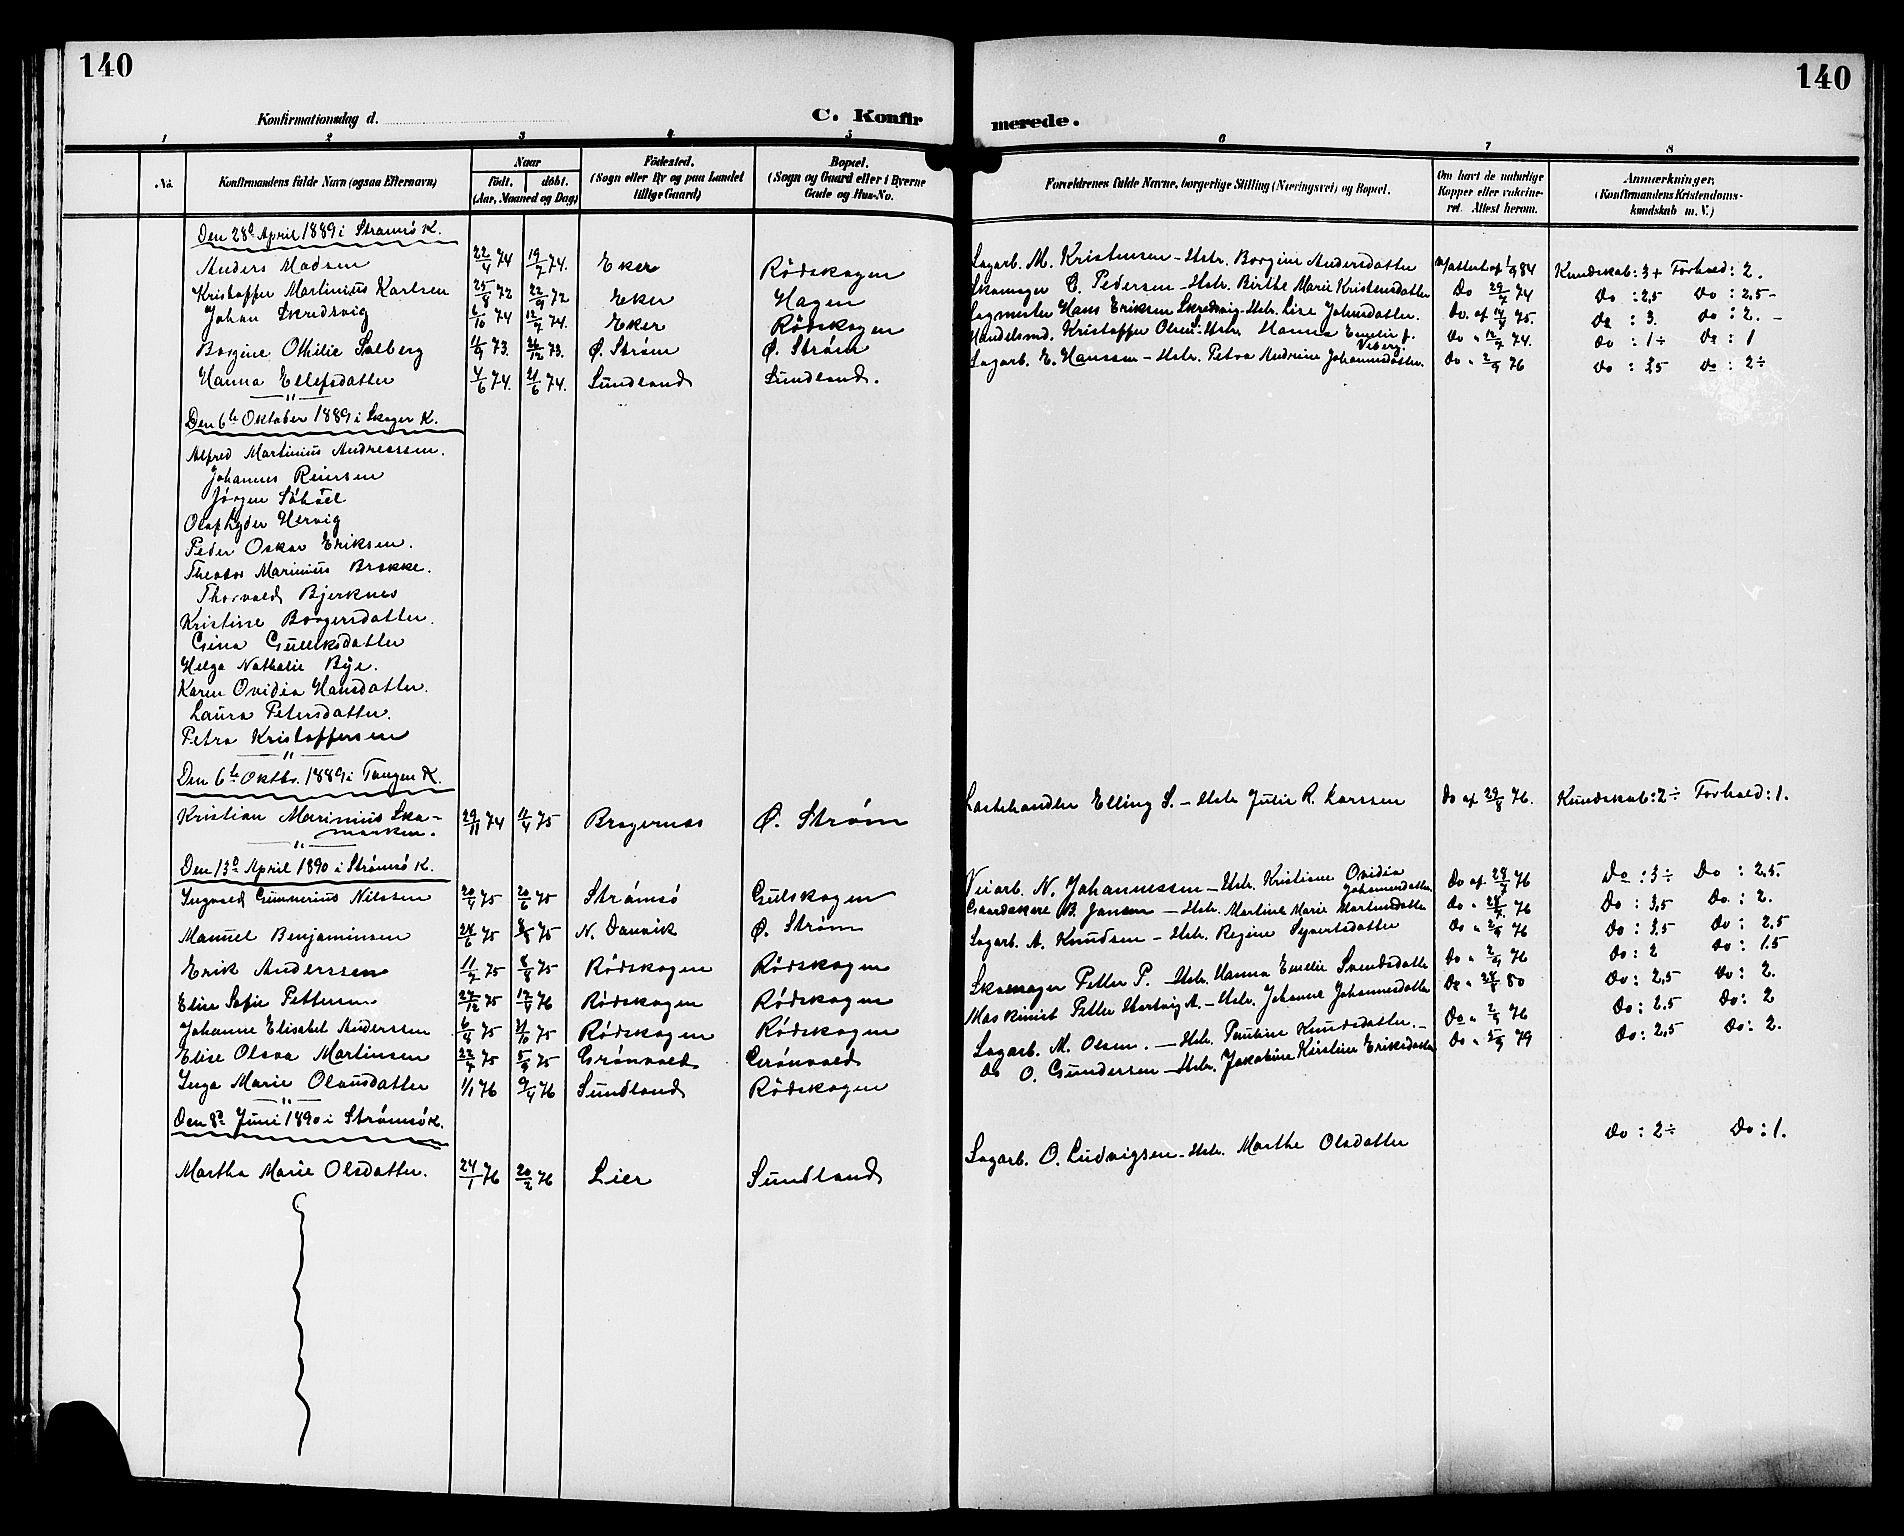 140
Konfirmationsdag d.
C. Konfir
1 2 3 4 5
No.
Konfirmandens fulde Navn (ogsaa Efternavn)
Naar
født. døbt.
(Aar, Maaned og Dag)
Fødested.
(Sogn eller By og paa Landet
tillige Gaard)
Bopæl.
(Sogn og Gaard eller i Byerne
Gade og Hus-No.
Den 28de April 1889 i Strømsö K.
Anders Madsen 22/4 74 19/7 74. Eker Rödskogen
Kristoffer Martinius Karlsen 25/8 72 22/9 72 Eker Hagen
Johan Skredsvig 74 12/7 74. Eker Rödskogen
Borgine Othilie Solberg 11/9 73. 26/12 73. Ø. Strøm Ø. Strøm
Hanna Ellefsdatter 4/6 74. 21/6 74. Sundland Sundland.
"
Den 6te Oktober 1889 i Skoger K.
Alfred Martinius Andreassen.
Johannes Reiersen
Jörgen Söhöel
Olaf Hervig
Peder Oskar Eriksen.
Theodor Marinius Brække.
Thorvald Bjerknes
Kristine Borgersdatter.
Gina Gulliksdatter
Helga Nathalie Bye.
Karen Ovidia Hansdatter.
Laura Petersdatter.
Petra Kristoffersen
"
Den 6te Oktbr. 1889 i Tangen K.
Kristian Marinius Ska-
marken. 29/11 74 11/4 75 Bragernæs Ø. Strøm
"
Den 13de April 1890 i Strømsö K.
Ingvald Gunnerius Nilssen 75 20/6 75 Strømsö Gulskogen
Manuel Benjaminsen 24/6 75 8/8 75 N. Danvik Ø. Strøm
Erik Anderssen 11/7 75 8/8 75 Rödskogen Rödskogen
Elise Sofie Pettersen 27/12 75 17/4 76 Rödskogen Rödskogen
Johanne Elisabet Anderssen 75 75 Rödskogen Rödskogen
Elise Olava Martinsen 22/7 75 5/9 75 Grønvold Grønvold
Inga Marie Olausdatter 1/1 76 9/4 76 Sundland Rödskogen
"
Den 8de Juni 1890 i Strømsö K.
Martha Marie Olsdatter. 24/1 76 20/2 76 Lier Sundland
140
merede.
6 7 8
Forældrenes fulde Navne, borgerlige Stilling (Næringsvei) og Bopæl.
Om havt de naturlige
Kopper eller vakcine-
ret. Attest herom.
Anmærkninger,
(Konfirmandens Kristendoms-
kundskab m. V.)
Sagarb. M. Kristensen - Hstr. Borgine Andersdatter 84 Kundskab: 3+ Forhold: 2.
Skomager C. Pedersen - Hstr. Birthe Marie Kristensdatter Do 29/7 74 Do : 2,5 Do : 2,5 -
Sagmester Hans Eriksen Skredsvig - Hstr. Lise Johnsdatter. Do. af 14/9 75. Do : 3. Do : 2. -
Handelsmd. Kristoffer Olsen S. - Hstr. Hanna Emelie J.
Viberg. Do " 12/7 74. Do : 1÷ Do : 1
Sagarb. E. Hanssen - Hstr. Petra Andrine Johannesdatter. Do " 2/9 76 Do : 2,5 Do : 2÷
Lastehandler Elling S. - Hstr. Julie R. Larssen Do af 29/8 76. Kundskab: 2÷ Forhold: 1.
Veiarb. N. Johannessen - Hstr. Kristiane Ovidia
Johannesdatter Do af 76 Do : 3÷ Do : 2,5.
Gaardskarl B. Jansen - Hstr. Martine Marie Martinsdatter Do " 76 Do : 3,5 Do : 2.
Sagarb. A. Knudsen - Hstr. Regine Syvertsdatter Do " 2/9 76 Do : 3,5 Do : 2,5
Skomager Petter P. - Hstr. Hanna Emelie Svendsdatter Do " 2/9 76 Do : 2 Do : 1,5
Maskinist Petter Hartvig A. - Hstr. Johanne Johannesdatter Do " 80 Do : 2,5 Do : 2.
Sagarb. M. Olsen. - Hstr. Pauline Knudsdatter. - Do " 2/9 76 Do : 2,5 Do : 2
Do O. Gundersen - Hstr. Jakobine Kirstine Eriksdatter Do " 5/9 79 Do : 2,5 Do : 2.
Sagarb. O. Ludvigsen - Hstr. Marthe Olsdatter Do : 2÷ Do : 1.